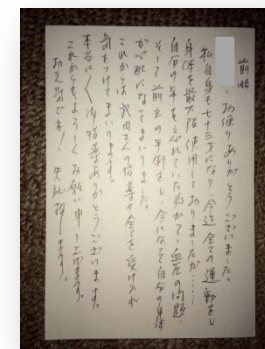 前略
お便りありがとうございました。
私自身も七十三才になり、今迄全ての運動をし
身体を最大限使用しておりましたが……
自分の年を忘れていたわけで、血圧の問題
そして前立の手術をし、今になって自分の身体
が心配になってまいりました。
これからは 先生の指導の全てを受け入れ
気をつけてまいります。
本当に御指導ありがとうございます。
これからもよろしくお願い申し上げます。
お元気で! 失礼致します。